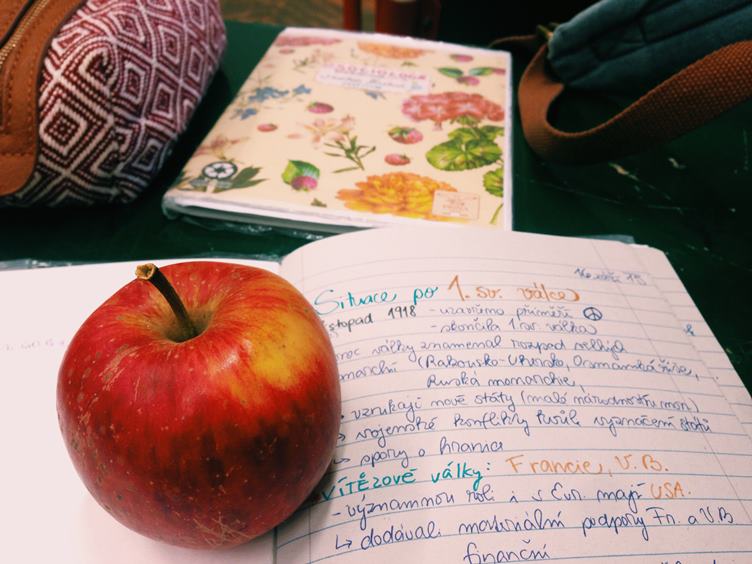 SOCIOLOGIE
16. září 15
Situace po 1. sv. válce
listopad 1918 - uzavřeno příměří
- skončila 1. sv. válka
války znamenal rozpad velkých
monarchií (Rakousko-Uhersko, Osmanská říše,
Ruská monarchie,
vznikají nové státy (malé národnostní mon)
↳ vojenské konflikty kvůli vyznačení států
↳ spory o hranice
VÍTĚZOVÉ války: Francie, V.B.
- významnou roli i v Evr. mají USA.
↳ dodávali materiální podpory Fr. a V.B
finanční